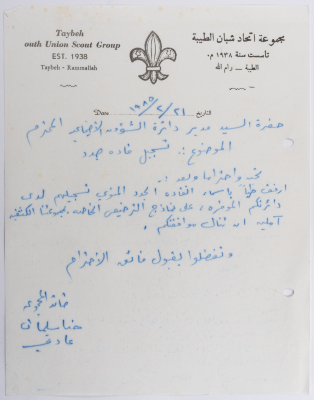 Taybeh
outh Union Scout Group
EST. 1938
Taybeh - Ramallah
مجموعة اتحاد شبان الطيبة
تأسست سنة ١٩٣٨ م.
الطيبة — رام الله
Date ١٩٨٥/٢/٢١ التاريخ
حضرة السيد مدير دائرة الشؤون الاجتماعية المحترم
الموضوع :. تسجيل قاده جدد
تحية واحتراما وبعد :.
ارفق طياً باسماء القاده الجدد المنوي تسجيلهم لدى
دائرتكم الموقره، على نماذج الترخيص الخاصه بمجموعتنا الكشفيه
آملين ان ننال موافقتكم.
وتفضلوا بقبول فائق الاحترام
قائد المجموعه
حنا سليمان